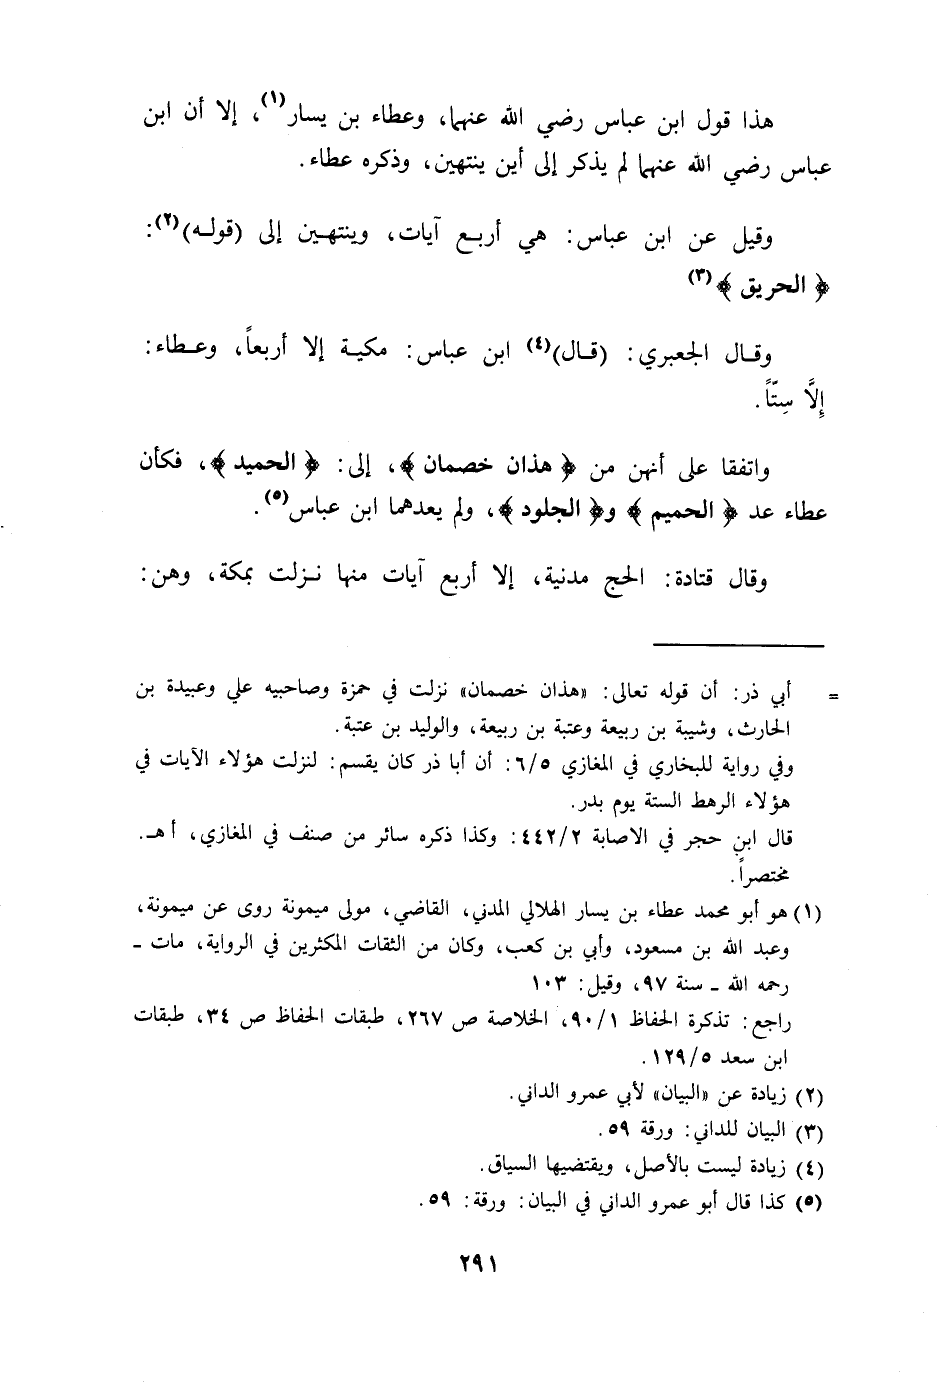 هذا قول ابن عباس رضي الله عنهما، وعطاء بن يسار(١)، إلا أن ابن
عباس رضي الله عنهما لم يذكر إلى أين ينتهين، وذكره عطاء.
وقيل عن ابن عباس: هي أربع آيات، وينتهين إلى (قوله)(٢):
﴿ الحريق ﴾(٣)
وقال الجعبري: (قال)(٤) ابن عباس: مكية إلا أربعاً، وعطاء:
إلَّا سِتّاً.
واتفقا على أنهن من ﴿ هذان خصمان ﴾، إلى: ﴿ الحميد ﴾، فكأن
عطاء عد ﴿ الحميم ﴾ و﴿ الجلود ﴾، ولم يعدهما ابن عباس(٥).
وقال قتادة: الحج مدنية، إلا أربع آيات منها نزلت بمكة، وهن:
= أبي ذر: أن قوله تعالى: «هذان خصمان» نزلت في حمزة وصاحبيه علي وعبيدة بن
الحارث، وشيبة بن ربيعة وعتبة بن ربيعة، والوليد بن عتبة.
وفي رواية للبخاري في المغازي ٦/٥: أن أبا ذر كان يقسم: لنزلت هؤلاء الآيات في
هؤلاء الرهط الستة يوم بدر.
قال ابن حجر في الاصابة ٤٤٢/٢: وكذا ذكره سائر من صنف في المغازي، أهـ.
مختصراً.
(١) هو أبو محمد عطاء بن يسار الهلالي المدني، القاضي، مولى ميمونة روى عن ميمونة،
وعبد الله بن مسعود، وأبي بن كعب، وكان من الثقات المكثرين في الرواية، مات ـ
رحمه الله ـ سنة ٩٧، وقيل: ١٠٣
راجع: تذكرة الحفاظ ٩٠/١، الخلاصة ص ٢٦٧، طبقات الحفاظ ص ٣٤، طبقات
ابن سعد ١٢٩/٥.
(٢) زيادة عن «البيان» لأبي عمرو الداني.
(٣) البيان للداني: ورقة ٥٩.
(٤) زيادة ليست بالأصل، ويقتضيها السياق.
(٥) كذا قال أبو عمرو الداني في البيان: ورقة: ٥٩.
٢٩١